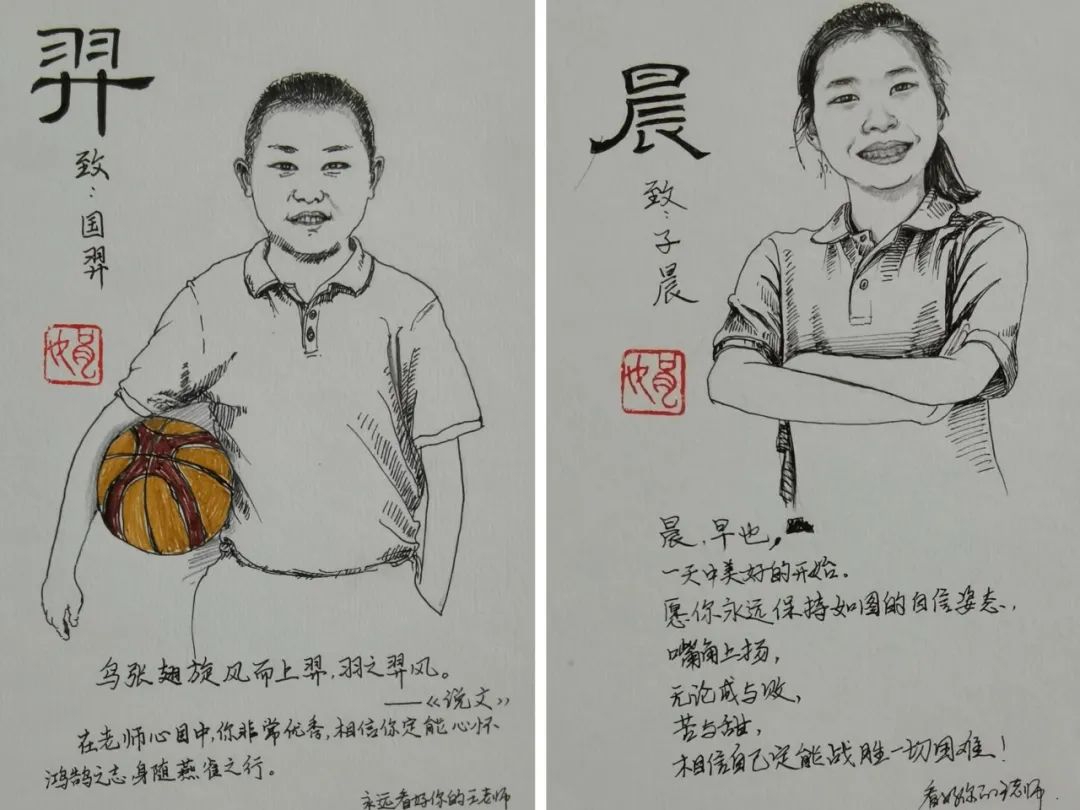 羿
致：国羿
鸟张翅旋风而上羿，羽之羿风。
——《说文》
在老师心目中，你非常优秀，相信你定能心怀
鸿鹄之志身随燕雀之行。
永远看好你的王老师
晨
致：子晨
晨，早也，
一天中美好的开始。
愿你永远保持如图的自信姿态，
嘴角上扬，
无论成与败，
苦与甜，
相信自己定能战胜一切困难！
看好你的王老师